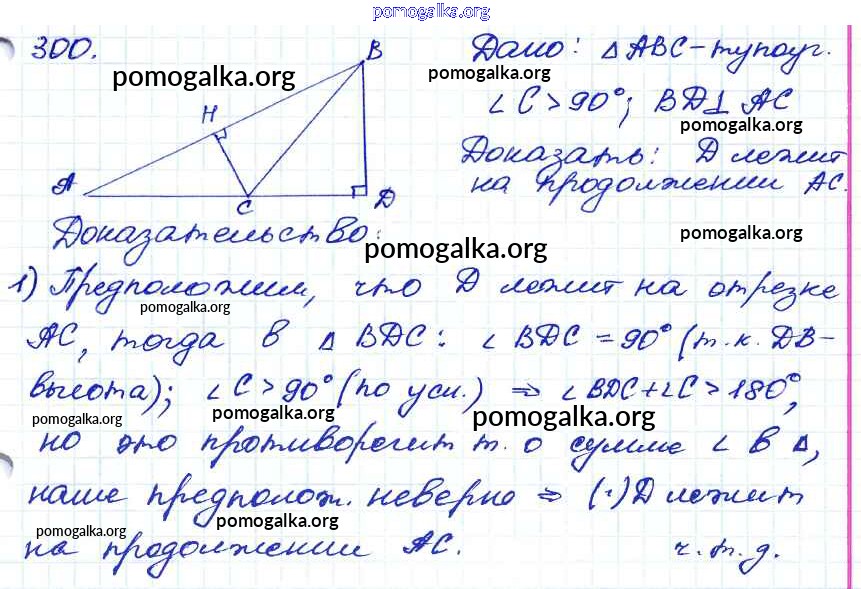 pomogalka.org
300.
B
Дано: △ABC-тупоуг.
pomogalka.org
pomogalka.org
H
∠C>90°; BD⊥AC
pomogalka.org
A
C
D
Доказать: D лежит
на продолжении AC.
Доказательство:
pomogalka.org
pomogalka.org
1) Предположим, что D лежит на отрезке
pomogalka.org
AC, тогда в △BDC: ∠BDC=90° (т.к. DB-
высота); ∠C>90° (по усл.) ⇒ ∠BDC+∠C>180°,
pomogalka.org
pomogalka.org
pomogalka.org
но это противоречит т. о сумме ∠ в △,
наше предполож. неверно ⇒ (·) D лежит
pomogalka.org
pomogalka.org
pomogalka.org
на продолжении AC. ч.т.д.